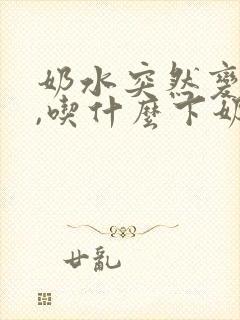 奶水突然變
,喫什麼下奶
廿亂